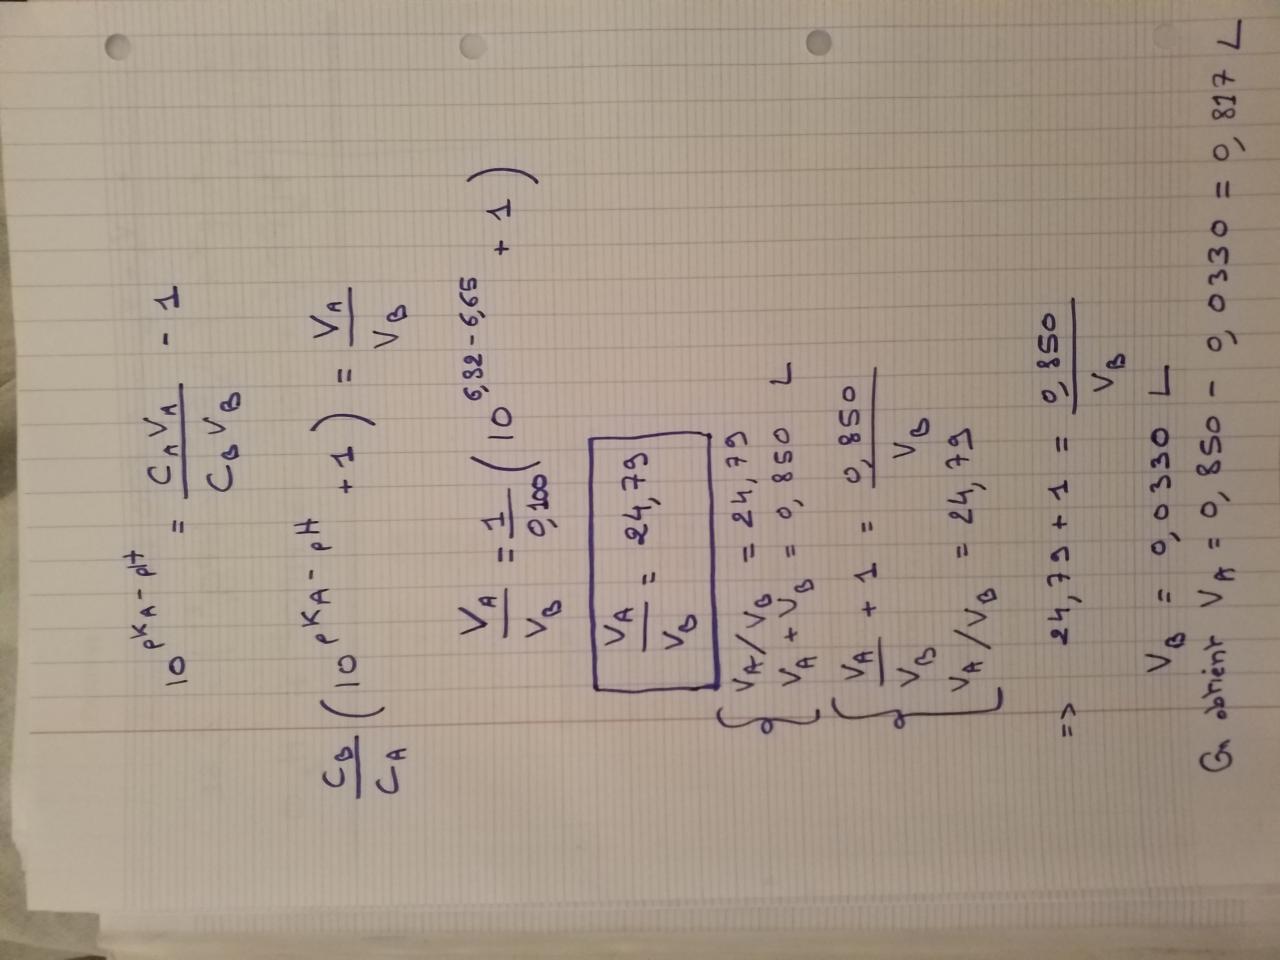 10^(pKA - pH) = CA VA / CB VB - 1
CB / CA (10^(pKA - pH) + 1) = VA / VB
VA / VB = 1 / 0,100 (10^(6,82 - 6,65) + 1)
VA / VB = 24,79
{ VA / VB = 24,79
VA + VB = 0,850 L
{ VA / VB + 1 = 0,850 / VB
VA / VB = 24,79
=> 24,79 + 1 = 0,850 / VB
VB = 0,0330 L
On obtient VA = 0,850 - 0,0330 = 0,817 L